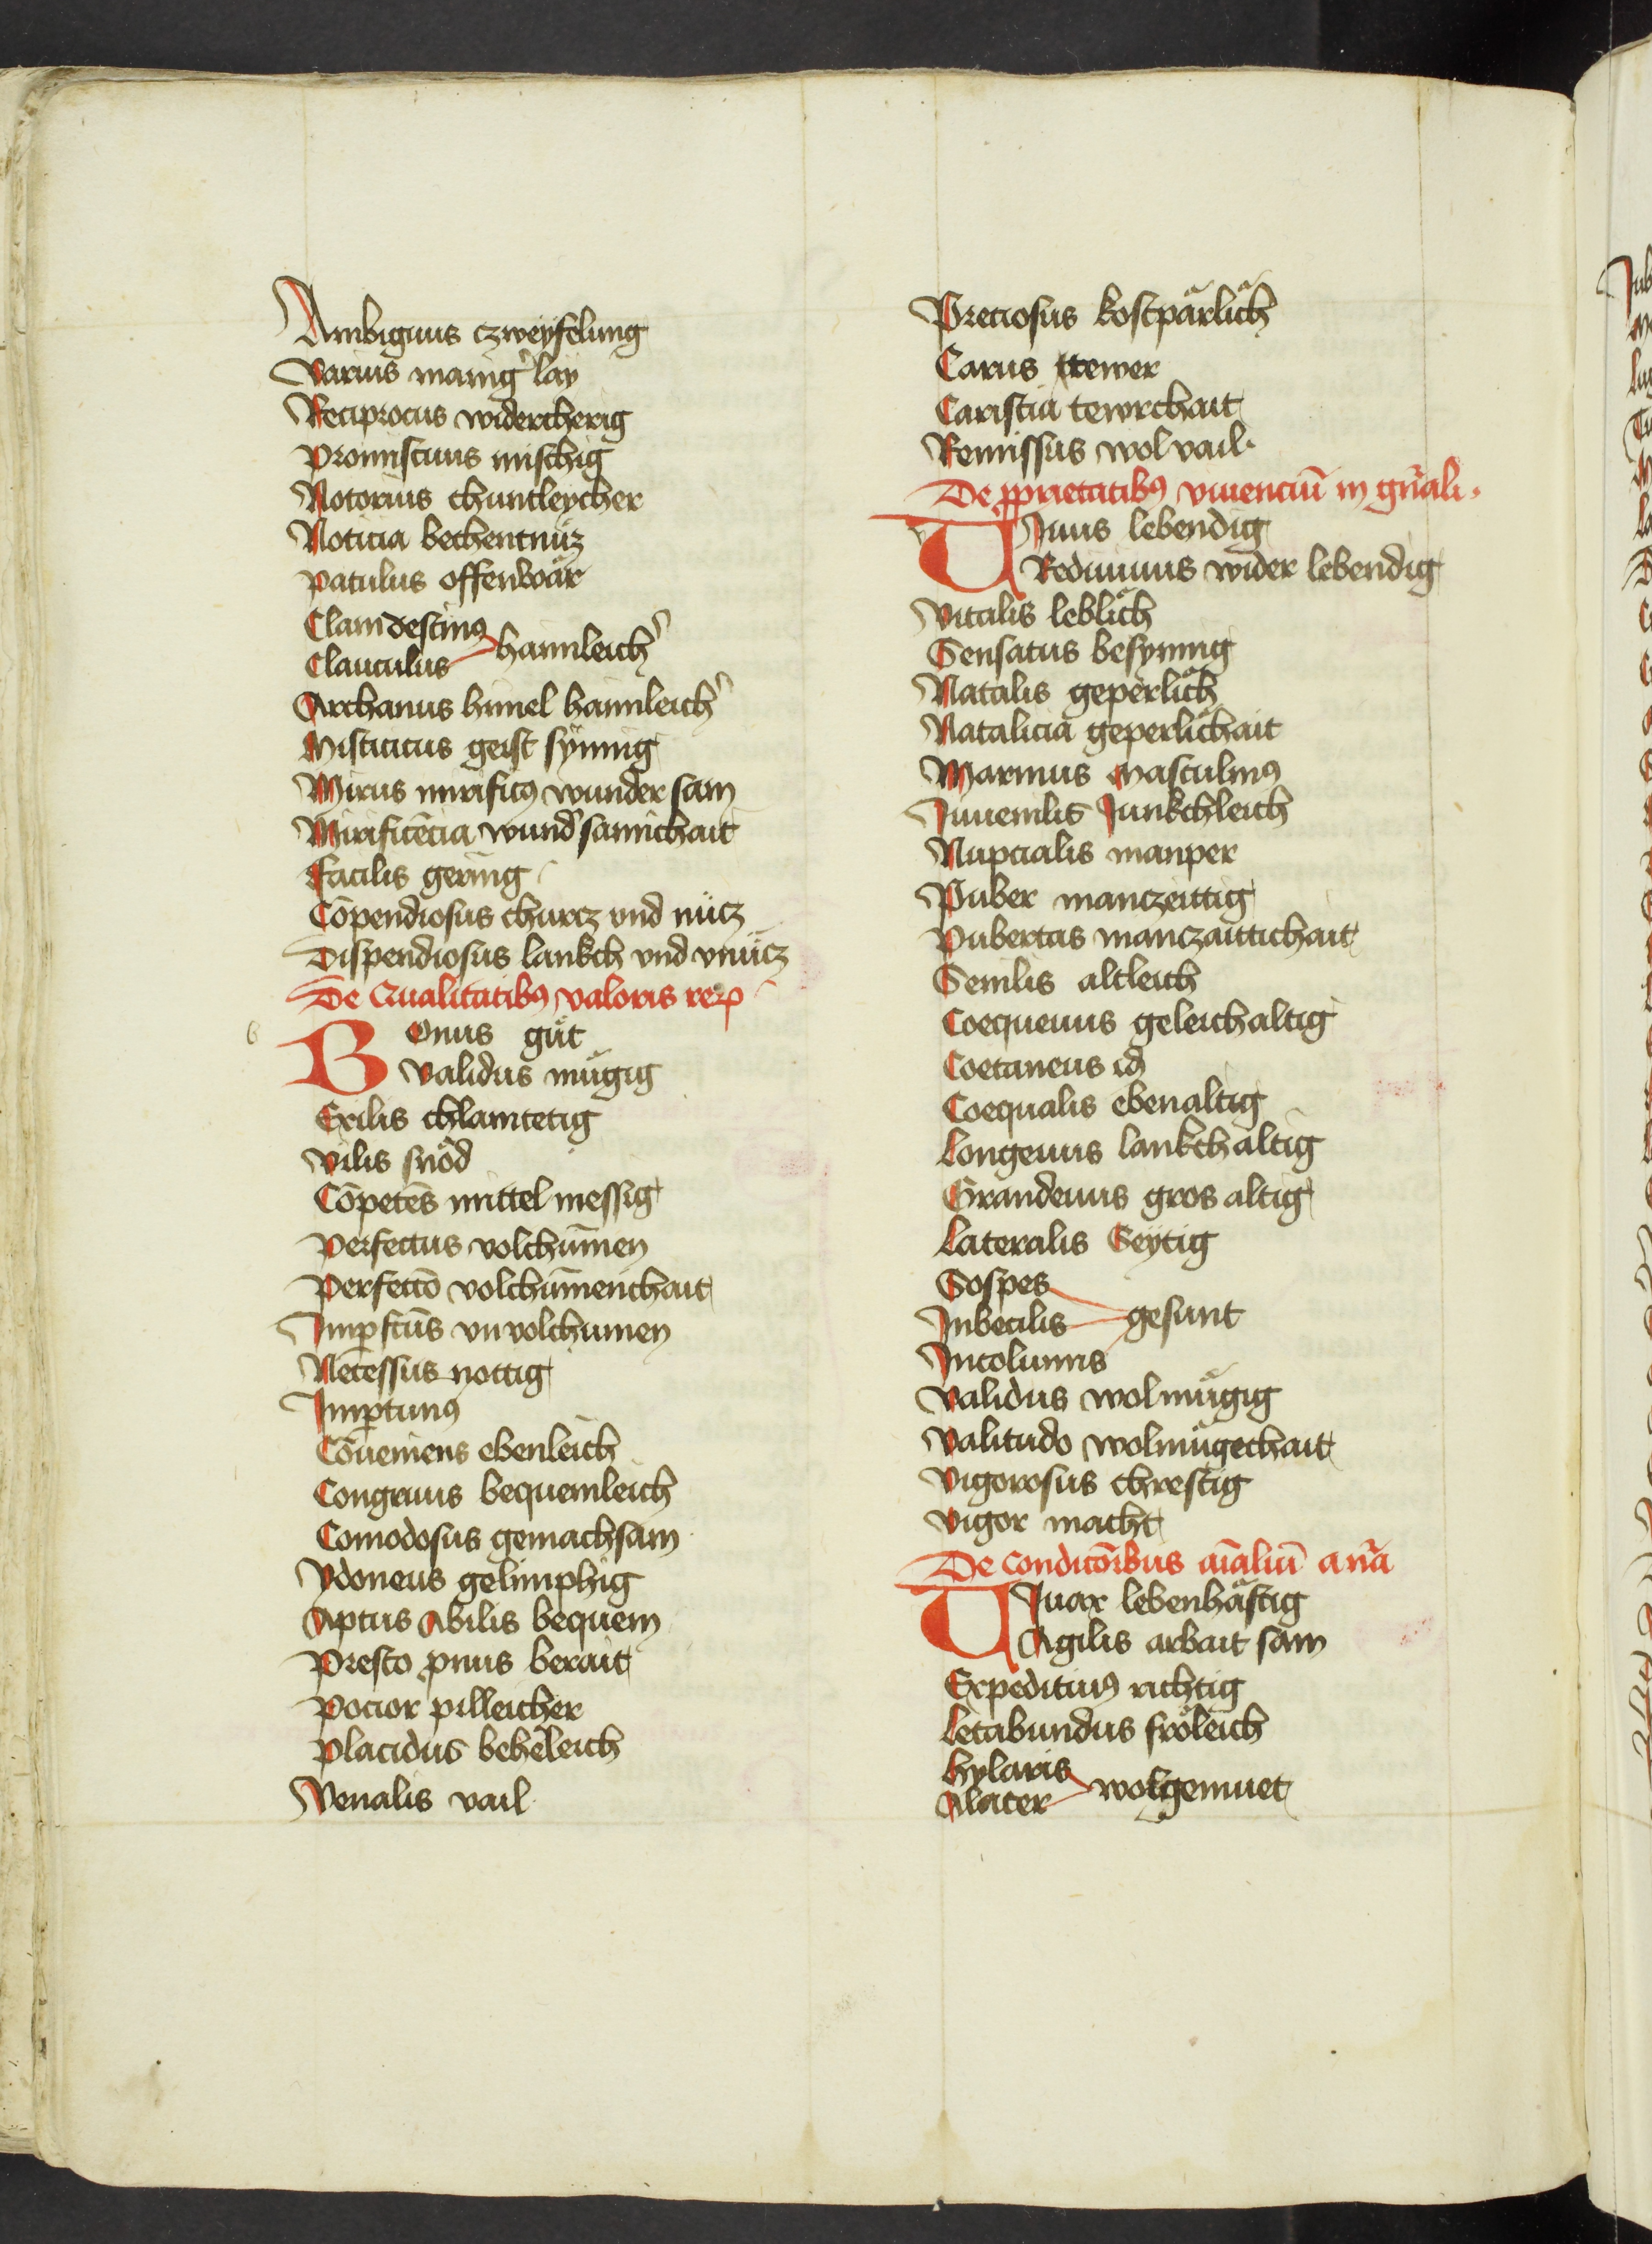 Ambiguus czweyfelung
Varius manig᷑ lay
Reciprocus widercherig
Promiscuus mischig
Notorius chuntleycher
Noticia bechentnüz
Patulus offenwär
Clamdestinꝰ
Clauculus haimleich᷑
Archanus himel haimleich᷑
Misticus geist synnig
Mirus mirificꝰ wunder sam
Mirificēcia wund᷑ samichait
Facilis gering
Cōpendiosus churcz vnd nücz
Dispendiosus lankch vnd vnücz
De Qualitatibꝰ valoris reꝝ
b
Bonus gůt
Validus mügig
Exilis chlamtetig
Vilis snöd
Cōpetēs mittel messig
Perfectus volchūmen
Perfectō volchūmenchait
Imꝑfctūs vnvolchumen
Necessus nottig
Imꝑtunꝰ
Cōueniens ebenleich
Congruus bequemleich
Comodosus gemachsam
Ydoneus gelimphig
Aptus Abilis bequem
Presto pnus berait
Pocior pilleicher
Placidus beheleich
Venalis vail
Preciosus kostpärlich
Carus tewer
Caristia tewrchait
Remissus wolvail
De ꝓprietatibꝰ viuenciū in gn̄ali
v
Viuus lebendig
Rediuiuus wider lebendig
Vitalis leblich
Sensatus besynnig
Natalis geperlich
Natalicia geperlichait
Marinus masculinꝰ
Iuuenilis Junkchleich
Nupcialis manper
Puber manczeittig
Pubertas manczaittichait
Senilis altleich
Coequeuus geleichaltig
Coetaneus id
Coequalis ebenaltig
Longeuus lankchaltig
Grandeuus gros altig
Lateralis Seytig
Sospes
Inbecilis gesunt
Incolumis
Validus wolmügig
Valitudo wolmügechait
Vigorosus chrestig
Vigor macht
De Condicōibus aīaliū a nā
Viuax lebenhäftig
Agilis arbait sam
Expeditiuꝰ richtig
Letabundus fröleich
Hylaris
Alacer wolgemuet